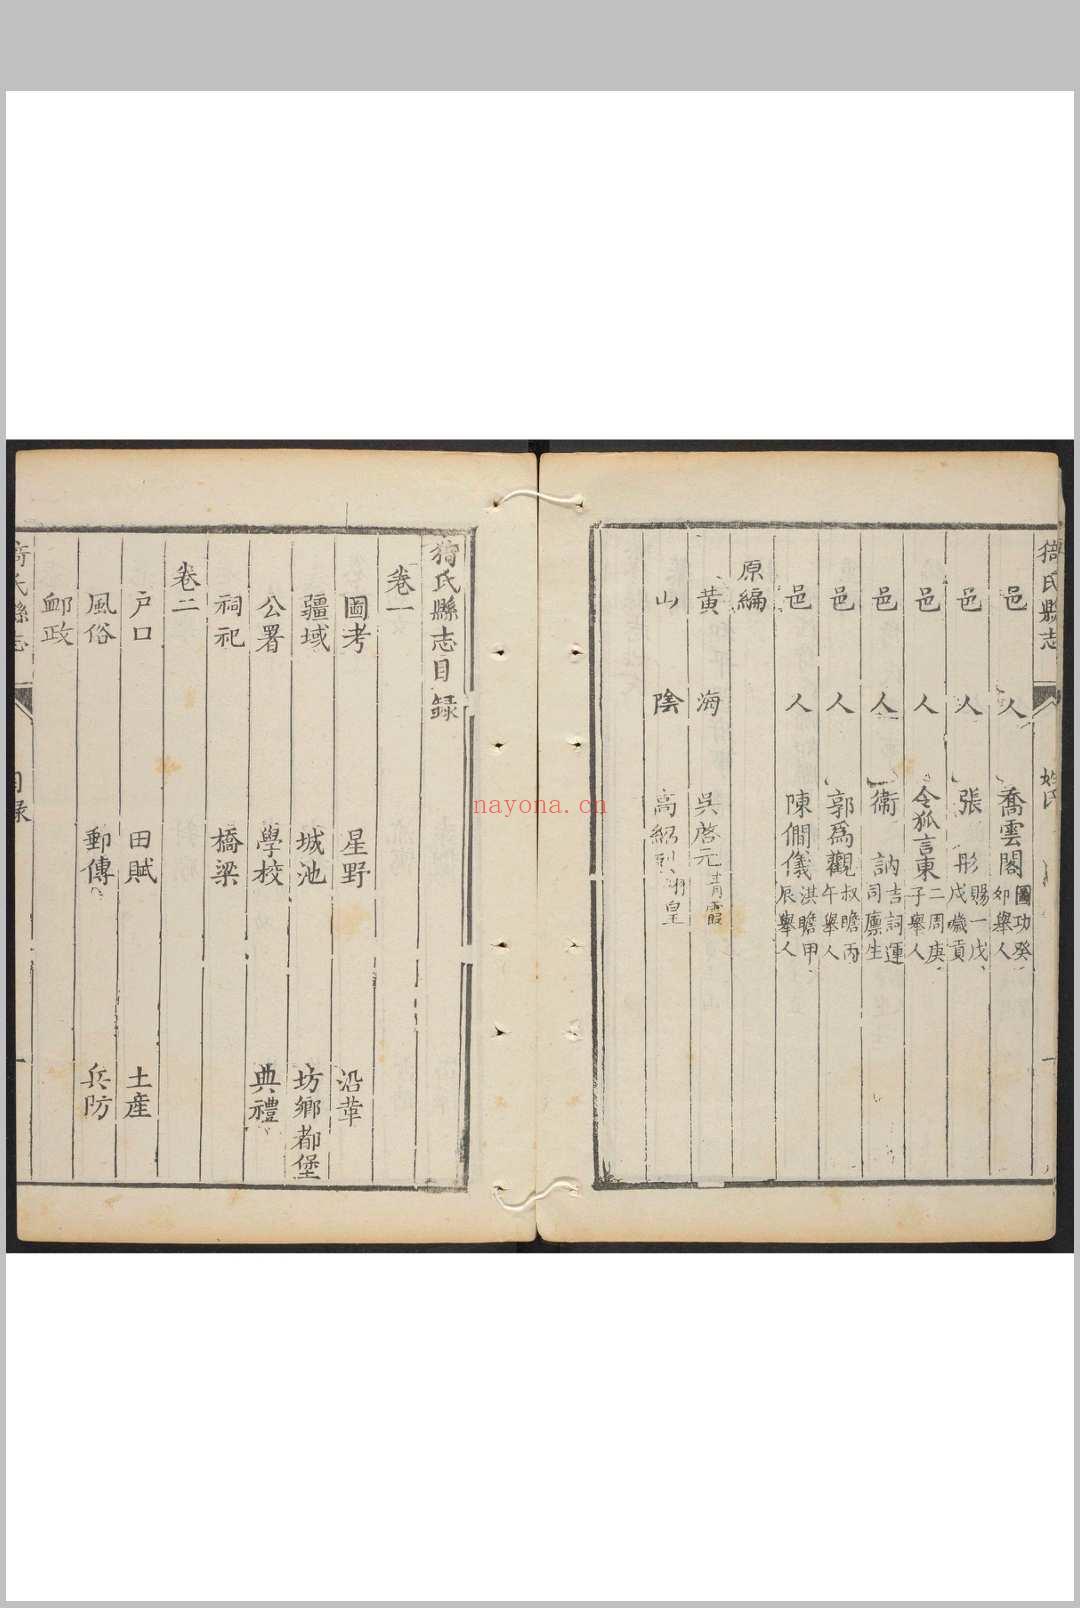 猗氏縣志
姓氏
一
邑人喬雲閣圖功癸卯舉人
邑人張彤賜一戊戌歲貢
邑人令狐言東二周庚子舉人
邑人衞訥吉詞運司廩生
邑人郭爲觀叔瞻丙午舉人
邑人陳僩儀洪瞻甲辰舉人
原編
黄海吳啓元青霞
山陰高紹
猗氏縣志目録
卷一
圖考 星野 沿革
疆域 城池 坊鄉都堡
公署 學校 典禮
祠祀 橋梁
卷二
户口 田賦 土産
風俗 郵傳 兵防
䘏政
猗氏縣志
目録
一
nayona.cn